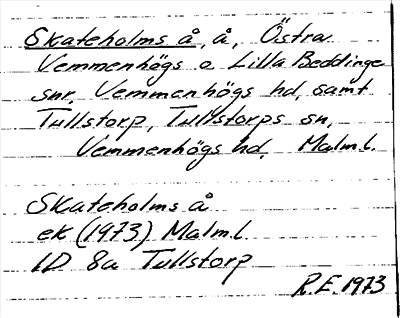 Skateholms å, å, Östra
Vemmenhögs o Lilla Beddinge
snr, Vemmenhögs hd, samt
Tullstorp, Tullstorps sn,
Vemmenhögs hd, Malm.l.
Skateholms å
ek (1973) Malm.l.
1D 8a Tullstorp
R.E. 1973